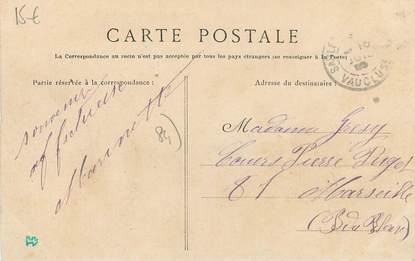 15€
CARTE POSTALE
(La Correspondance au recto n'est pas acceptée par tous les pays étrangers (se renseigner à la Poste)
Partie réservée à la correspondance:
Adresse du destinataire:
VAUCLUSE
souvenir
affectueuse
84)
Madame
Cours Pierre Puget
81 Marseille